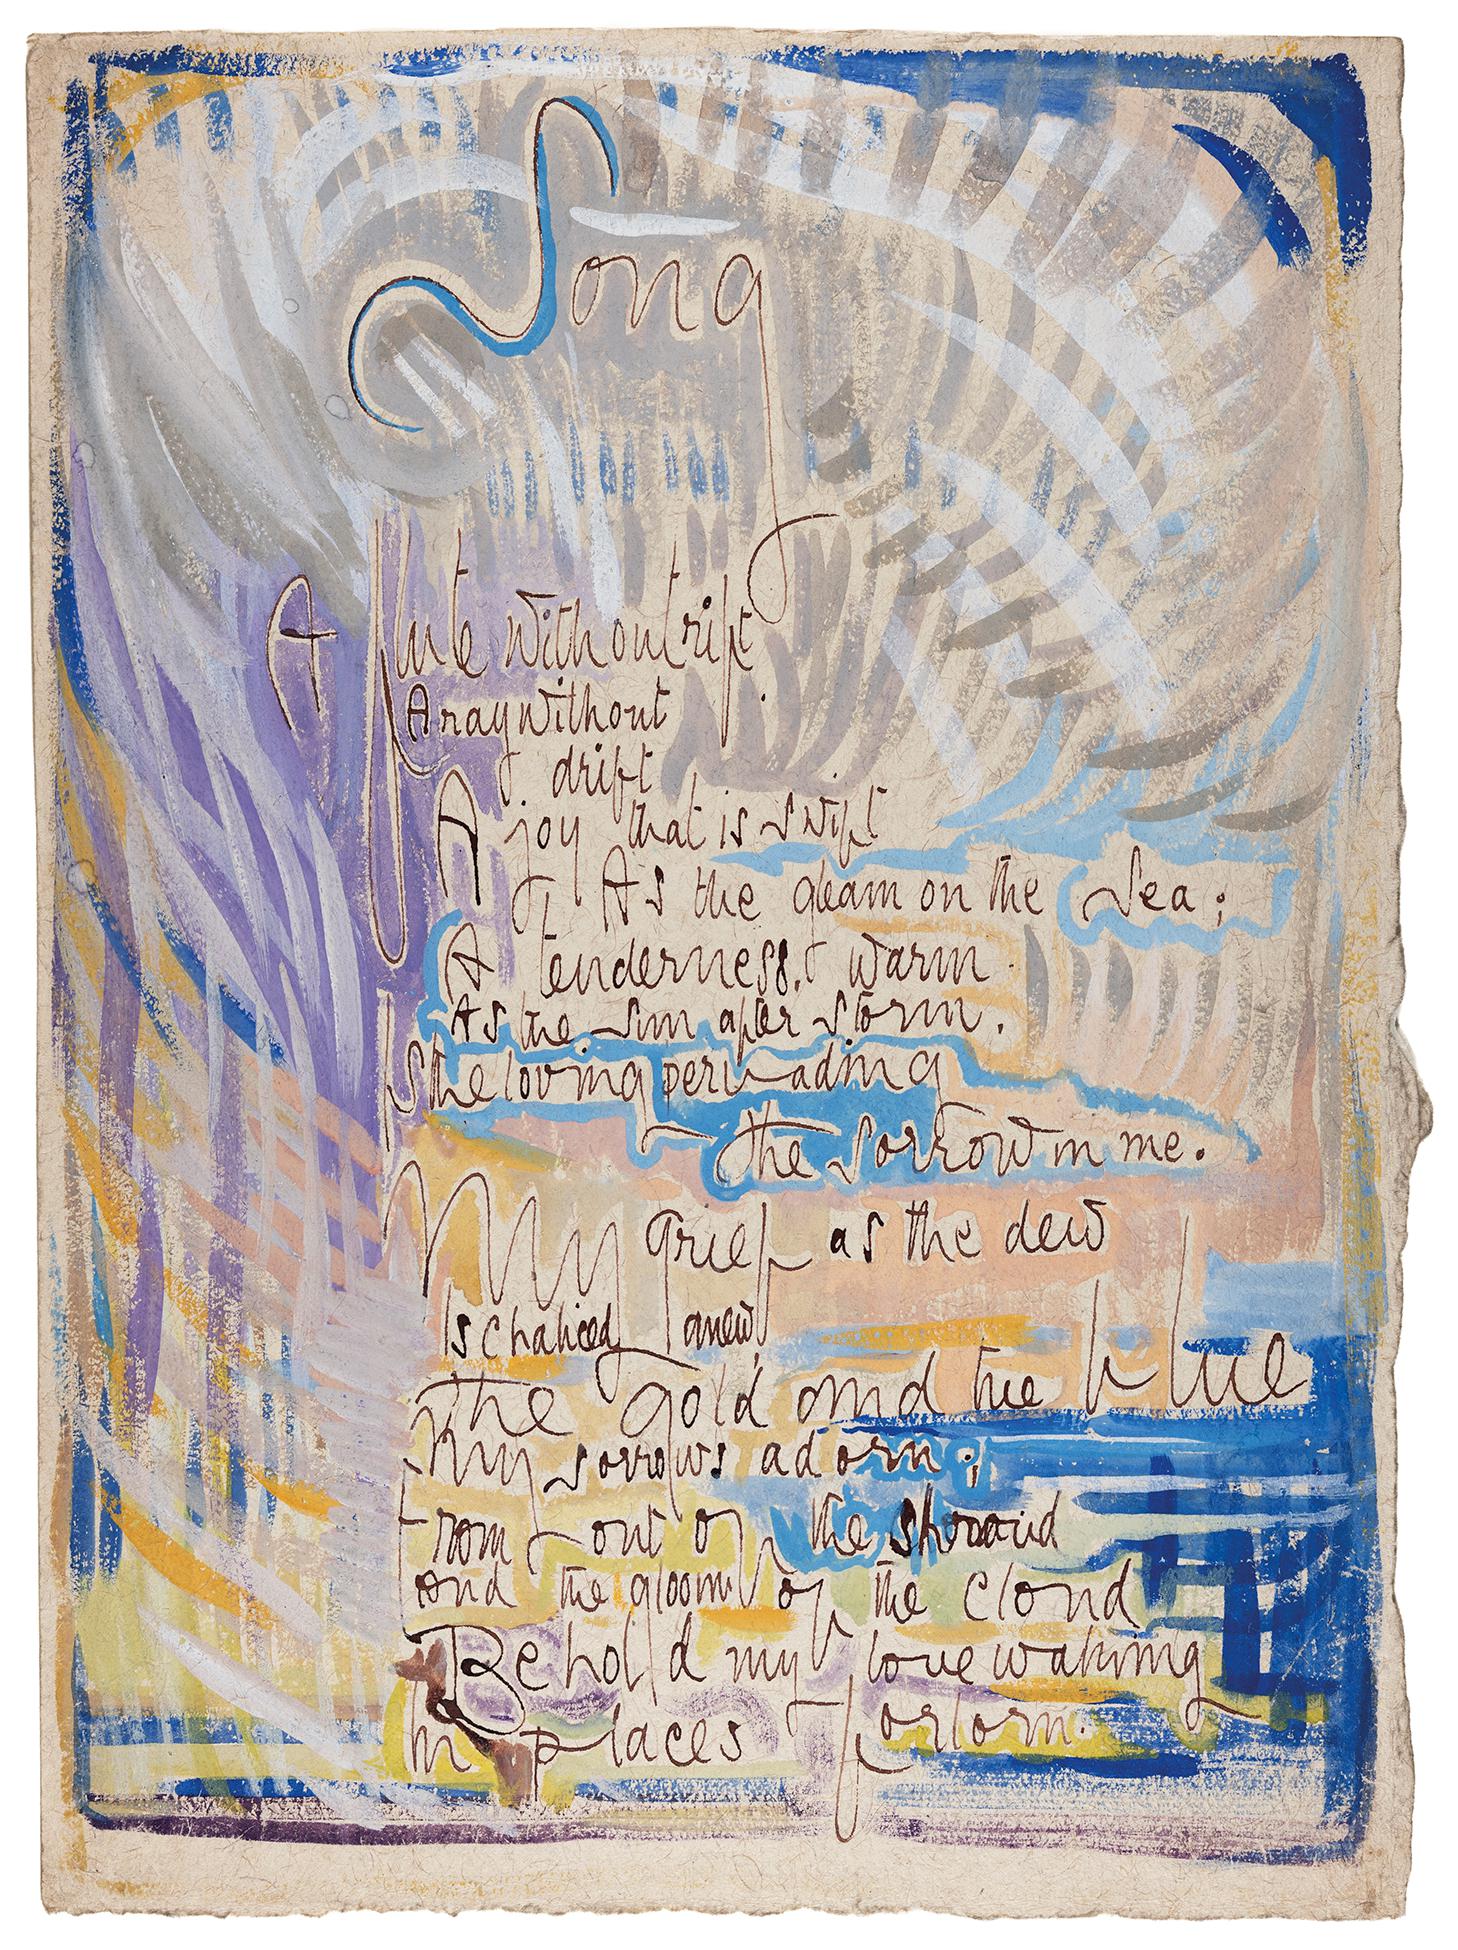 Song
A flute without rift
A ray without
drift
A joy that is swift
As the gleam on the Sea;
A tenderness, & warm
As the sun after storm.
Is the loving pervading
the sorrow in me.
My grief as the dew
Is chaliced anew,
The gold and the blue
My sorrows adorn;
From out of the shroud
and the gloom of the cloud
Behold my love waking
In places forlorn.